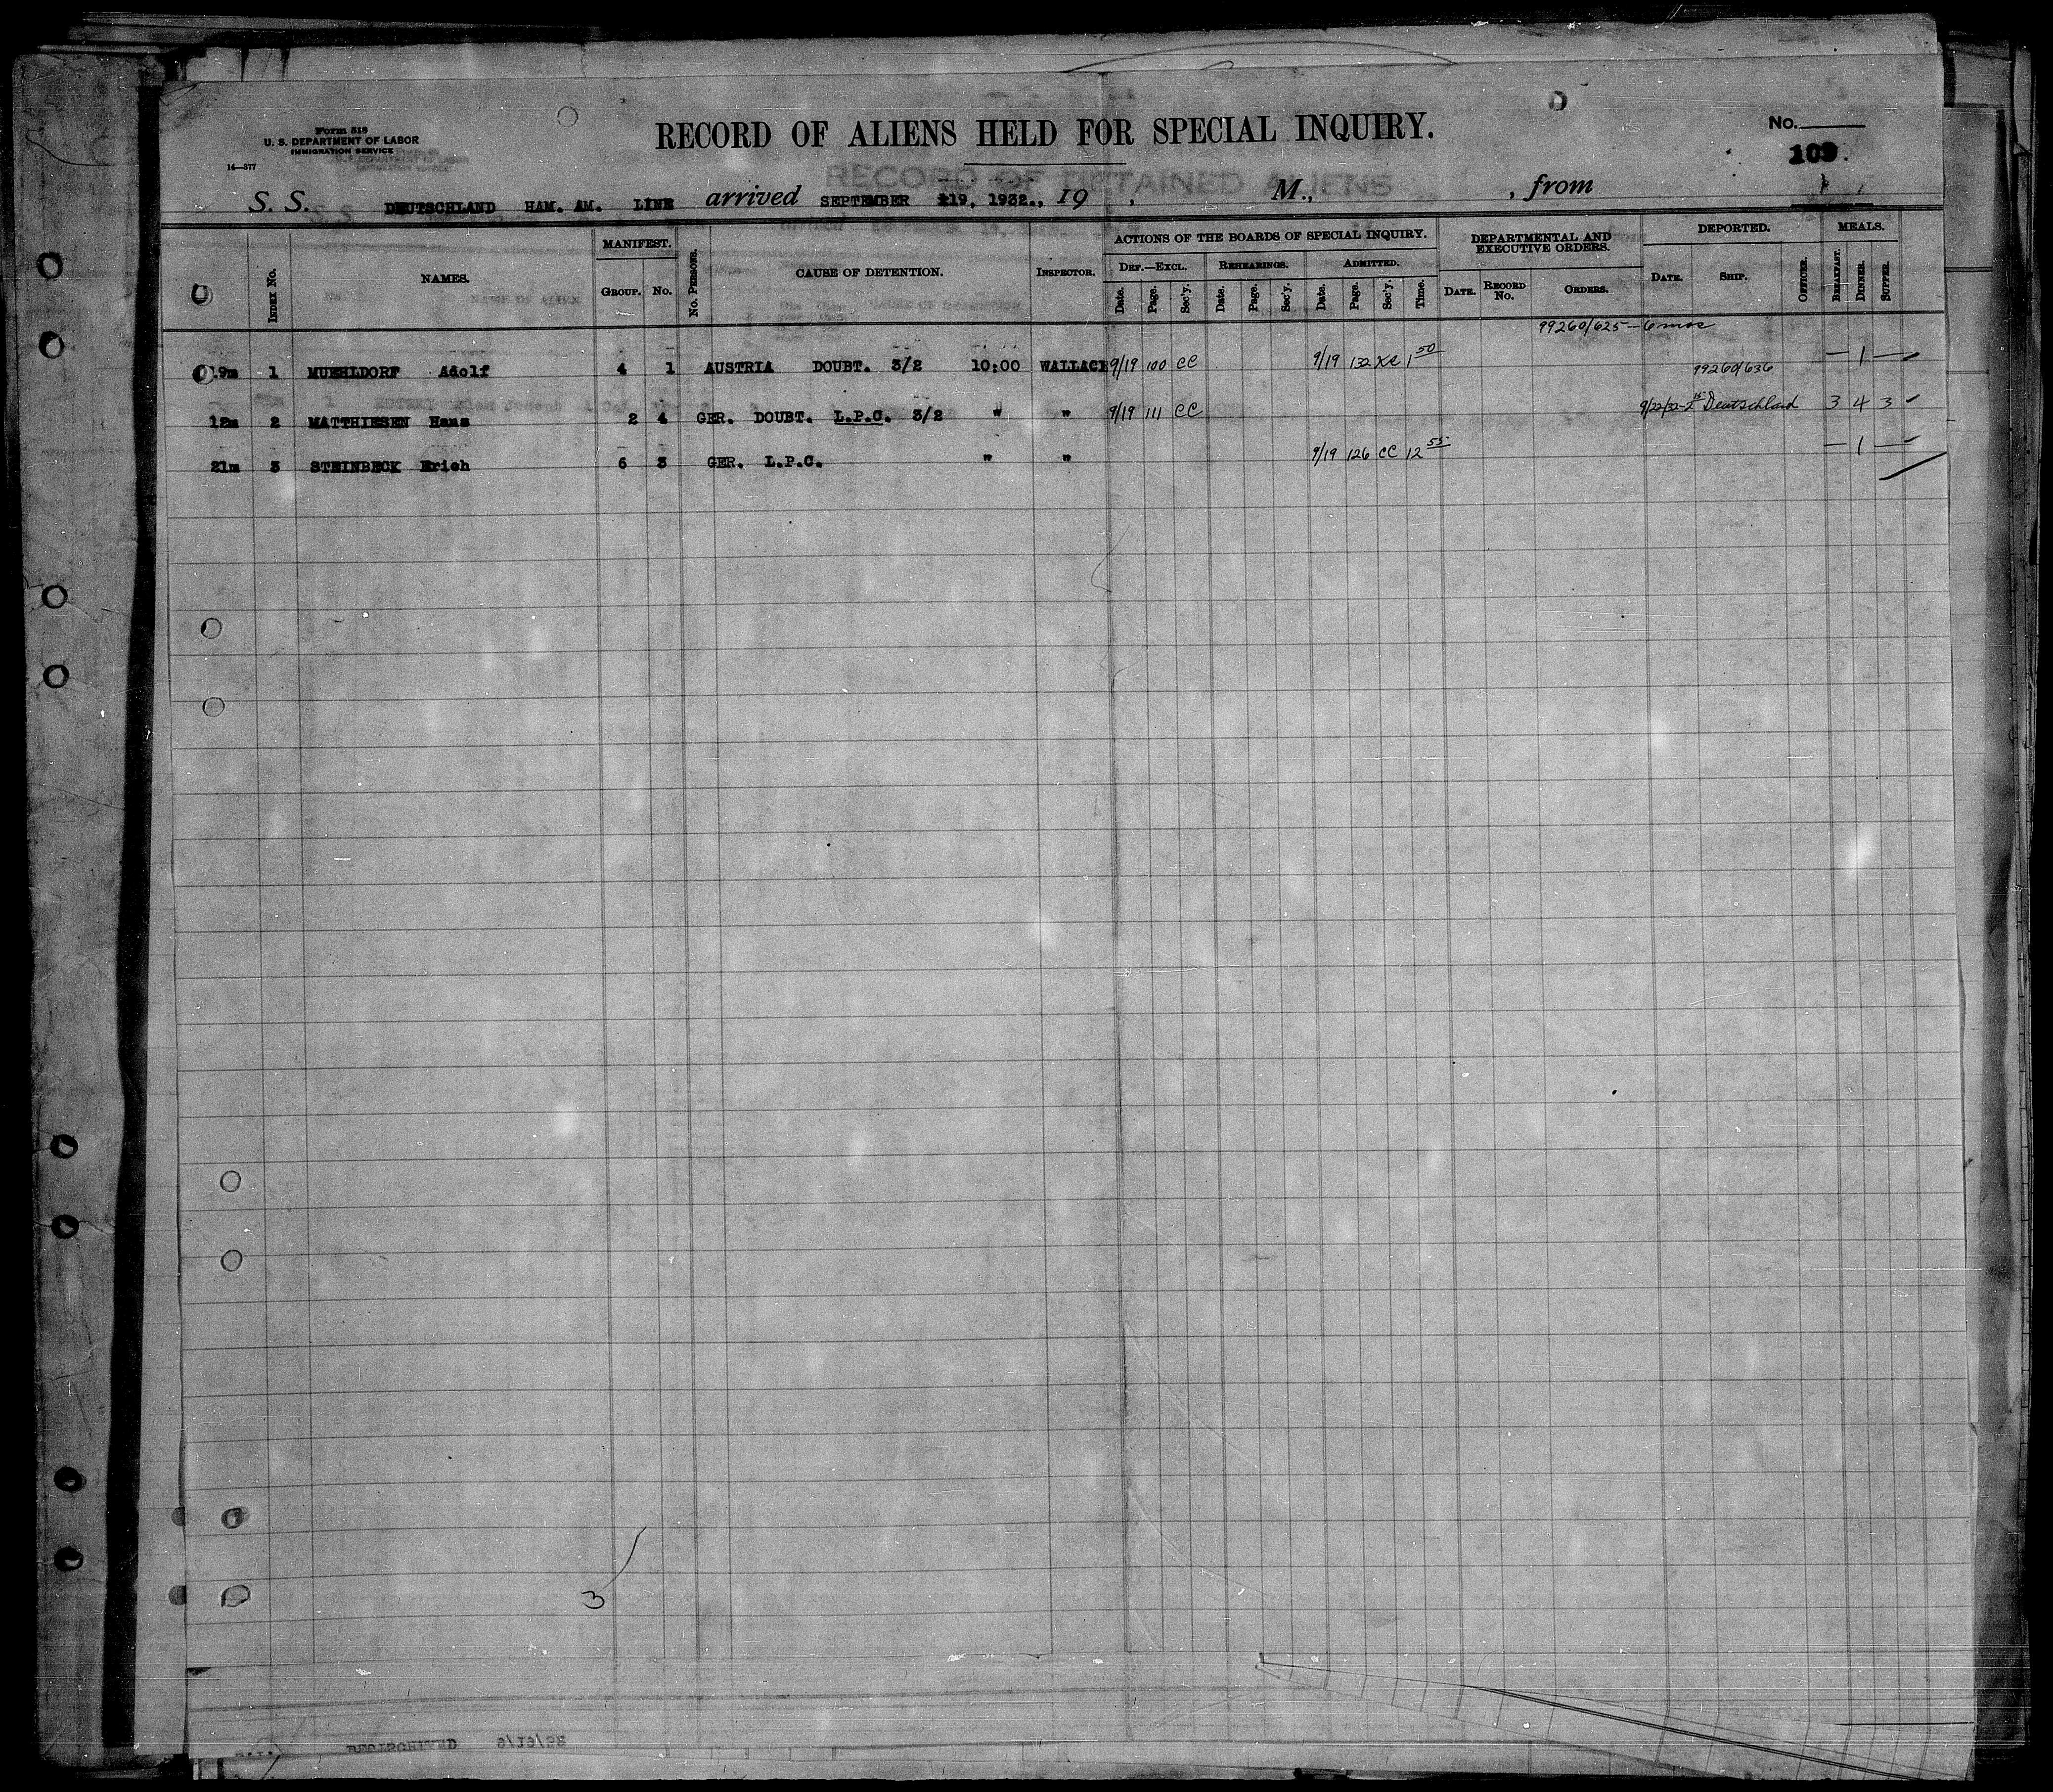 Form 518
U. S. DEPARTMENT OF LABOR
IMMIGRATION SERVICE
14—377
RECORD OF ALIENS HELD FOR SPECIAL INQUIRY.
No.
109.
RECORD OF DETAINED ALIENS
S. S. DEUTSCHLAND HAM. AM. LINE arrived SEPTEMBER 19, 1932., 19 , M., , from
INDEX No. NAMES. MANIFEST. GROUP. No. No. PERSONS. CAUSE OF DETENTION. INSPECTOR. ACTIONS OF THE BOARDS OF SPECIAL INQUIRY. DEF.—EXCL. Date. Page. Sec'y. REHEARINGS. Date. Page. Sec'y. ADMITTED. Date. Page. Sec'y. Time. DEPARTMENTAL AND EXECUTIVE ORDERS. DATE. RECORD No. ORDERS. DEPORTED. DATE. SHIP. OFFICER. MEALS. BREAKFAST. DINNER. SUPPER.
99260/625 — 6 mos
19m 1 MUEHLDORF Adolf 4 1 AUSTRIA DOUBT. 3/2 10:00 WALLACE 9/19 100 CC 9/19 132 KC 1 50 — 1 —
99260/636
12m 2 MATTHIESEN Hans 2 4 GER. DOUBT. L.P.C. 3/2 " " 9/19 111 CC 9/22/32 Deutschland 3 4 3
21m 3 STEINBECK Erich 6 3 GER. L.P.C. " " 9/19 126 CC 12 55 — 1 —
3
DEUTSCHLAND 9/19/32